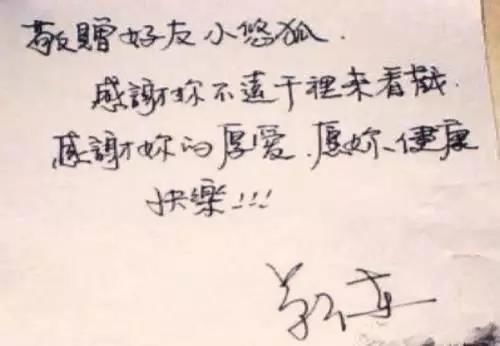 敬贈好友小悠狐.
感謝妳不遠千裡来看戲.
感謝妳的厚爱.愿妳、健康
快樂!!!